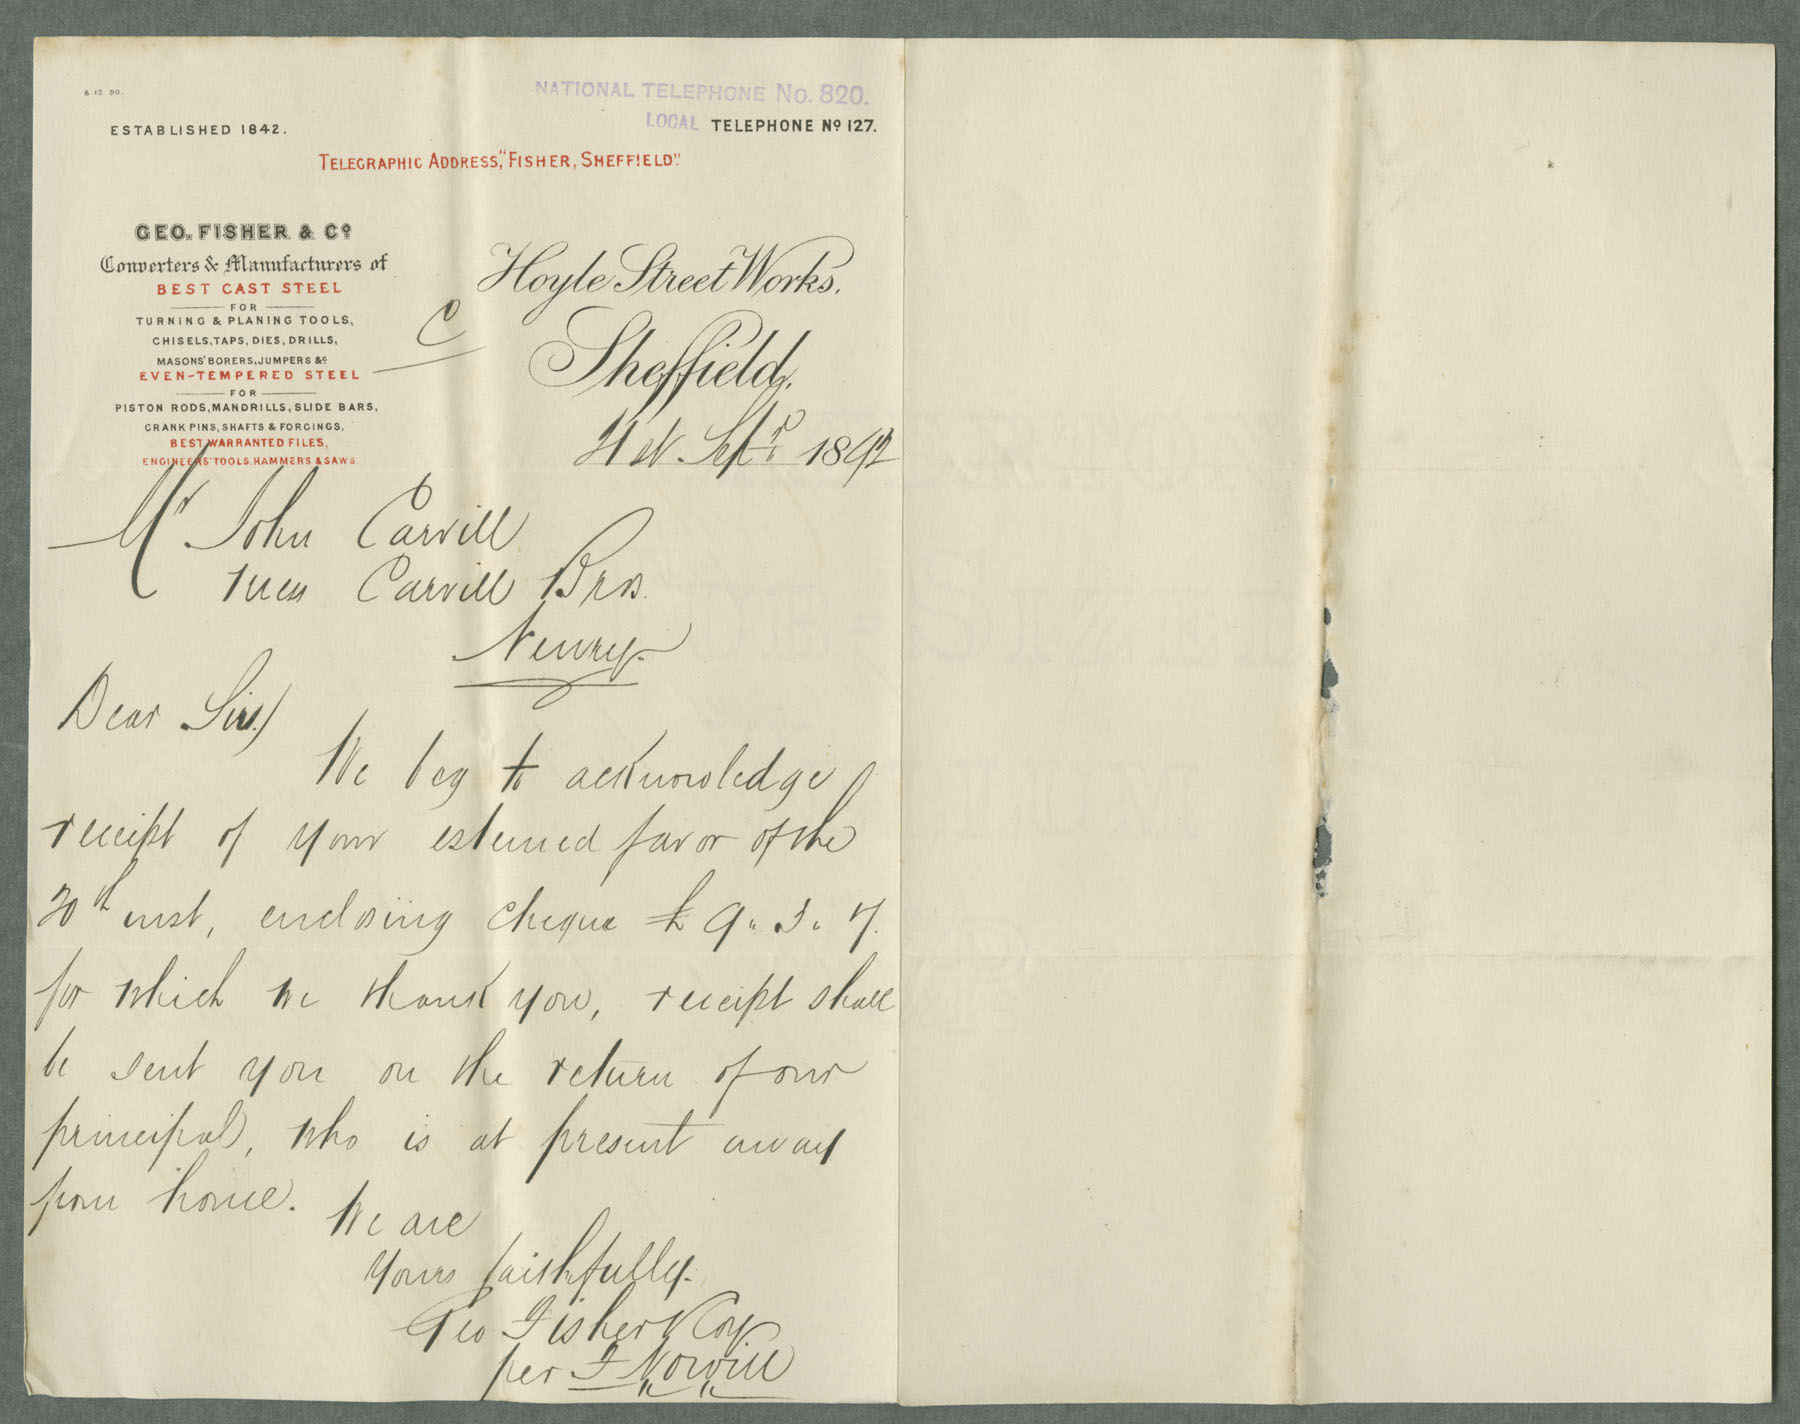 6.12.90.
NATIONAL TELEPHONE No. 820.
ESTABLISHED 1842.
LOCAL TELEPHONE No 127.
TELEGRAPHIC ADDRESS, "FISHER, SHEFFIELD".
GEO. FISHER & Co
Converters & Manufacturers of
BEST CAST STEEL
FOR
TURNING & PLANING TOOLS,
CHISELS, TAPS, DIES, DRILLS,
MASONS' BORERS, JUMPERS &c
EVEN-TEMPERED STEEL
FOR
PISTON RODS, MANDRILLS, SLIDE BARS,
CRANK PINS, SHAFTS & FORGINGS,
BEST WARRANTED FILES,
ENGINEERS' TOOLS, HAMMERS & SAWS.
C
Hoyle Street Works.
Sheffield,
Septr 1892
Mr John Carvill
Mess Carvill Bros.
Newry.
Dear Sirs)
We beg to acknowledge
receipt of your esteemed favor of the
20th inst, enclosing cheque £9. 3. 7.
for which we thank you, receipt shall
be sent you on the return of our
principal, who is at present away
from home.
We are
Yours faithfully.
Geo Fisher & Coy
per F Nowill